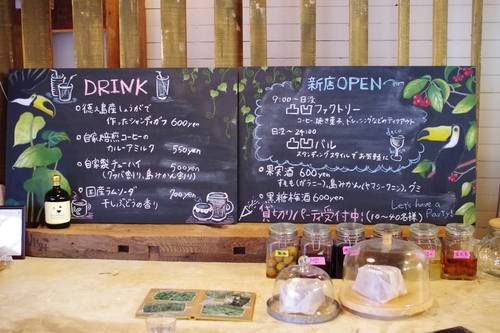 DRINK
徳之島産しょうがで
作ったシャンディガフ 600yen
自家焙煎コーヒーの
カルーアミルク 550yen
自家製チューハイ 500yen
(グァバ香り、島みかん香り)
国産ラムソーダ 700yen
干しぶどうの香り
新店OPEN
9:00〜日没
凸凹ファクトリー
コーヒー、焼き菓子、ドレッシングなどのテイクアウト
日没〜24:00
凸凹バル
スタンディングスタイルでお気軽に
deco
果実酒 600yen
すもも(ガラリー)、島みかん、ヤマシークニン、グミ
黒糖梅酒 600yen
貸しきりパーティ受付中!(10〜40名様)
Let's have a
Party!